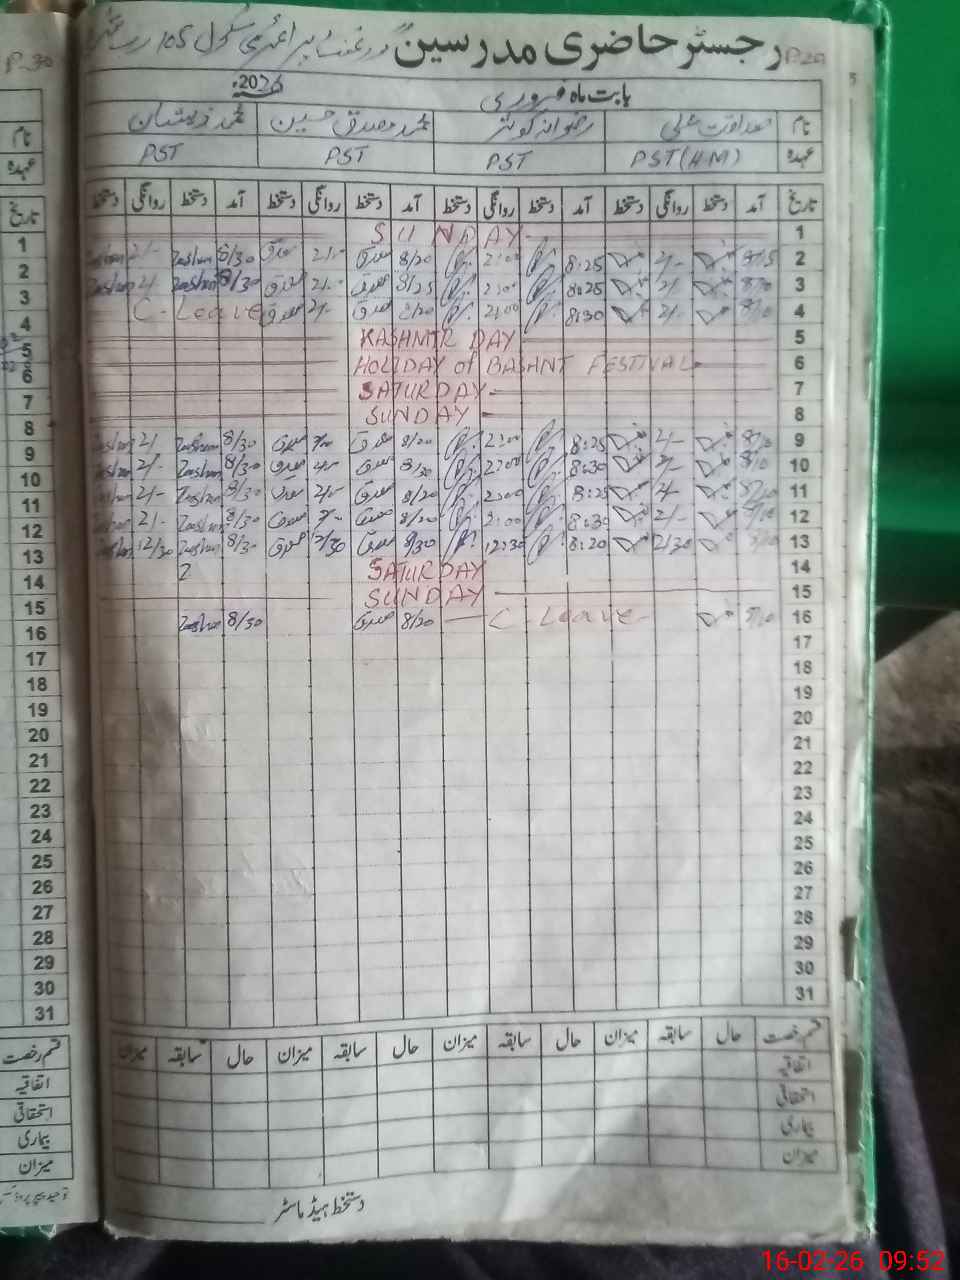 P-20 رجسٹر حاضری مدرسین گورنمنٹ پرائمری سکول 105
P-30
بابت ماہ فروری 2026ء
نام صداقت علی رضوانہ کوثر محمد مصدق حسین محمد ذیشان
عہدہ PST(HM) PST PST PST
تاریخ آمد دستخط روانگی دستخط آمد دستخط روانگی دستخط آمد دستخط روانگی دستخط آمد دستخط روانگی دستخط
1 SUNDAY
2 8/15 2/- 8:25 2:00 8/20 مصدق 2/- مصدق 8/30 Zeeshan 2/- Zeeshan
3 8/10 2/- 8:25 2:00 8/25 مصدق 2/- مصدق 8/30 Zeeshan 2/- Zeeshan
4 8/10 2/- 8:30 2:00 8/20 مصدق 2/- مصدق C-Leave
5 KASHMIR DAY
6 HOLIDAY of BASANT FESTIVAL
7 SATURDAY
8 SUNDAY
9 8/10 2/- 8:25 2:00 8/20 مصدق 2/- مصدق 8/30 Zeeshan 2/- Zeeshan
10 8/10 2/- 8:30 2:00 8/20 مصدق 2/- مصدق 8/30 Zeeshan 2/- Zeeshan
11 8/10 2/- 8:25 2:00 8/20 مصدق 2/- مصدق 8/30 Zeeshan 2/- Zeeshan
12 8/10 2/- 8:30 2:00 8/20 مصدق 2/- مصدق 8/30 Zeeshan 2/- Zeeshan
13 8/10 12/30 8:20 12:30 8/30 مصدق 12/30 مصدق 8/30 Zeeshan 12/30 Zeeshan
14 SATURDAY
15 SUNDAY
16 8/10 C-Leave 8/20 مصدق 8/30 Zeeshan
17
18
19
20
21
22
23
24
25
26
27
28
29
30
31
قسم رخصت حال سابقہ میزان حال سابقہ میزان حال سابقہ میزان حال سابقہ میزان
اتفاقیہ
استحقاقی
بیماری
میزان
دستخط ہیڈ ماسٹر
نام
عہدہ
تاریخ
1
2
3
4
5
6
7
8
9
10
11
12
13
14
15
16
17
18
19
20
21
22
23
24
25
26
27
28
29
30
31
قسم رخصت
اتفاقیہ
استحقاقی
بیماری
میزان
16-02-26 09:52